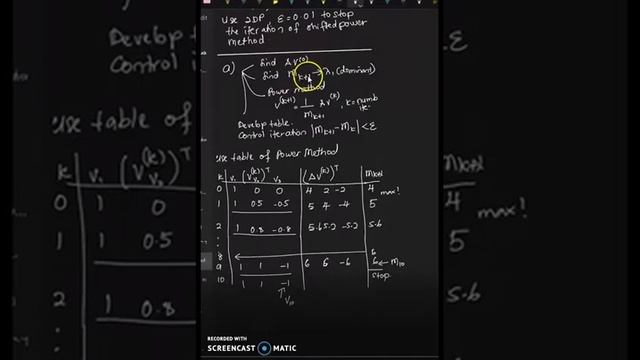 Use 2DP, ε = 0.01 to stop
the iteration of shifted power
method
a) find Av⁽⁰⁾
find m k+1 → λ₁ (dominant)
Power method
v⁽ᵏ⁺¹⁾ = 1/m k+1 Av⁽ᵏ⁾, k = numb
Develop table.
Control iteration |m k+1 - m k| < ε
Use table of Power Method
k v₁ (v⁽ᵏ⁾)ᵀ v₂ v₃ (Av⁽ᵏ⁾)ᵀ m k+1
0 1 0 0 4 2 -2 4 max!
1 1 0.5 -0.5 5 4 -4 5
2 1 0.8 -0.8 5.6 5.2 -5.2 5.6
:
8 6
9 1 1 -1 6 6 -6 6 ← m₁₀
10 1 1 -1 stop
↑ v₁₀
RECORDED WITH
SCREENCAST MATIC